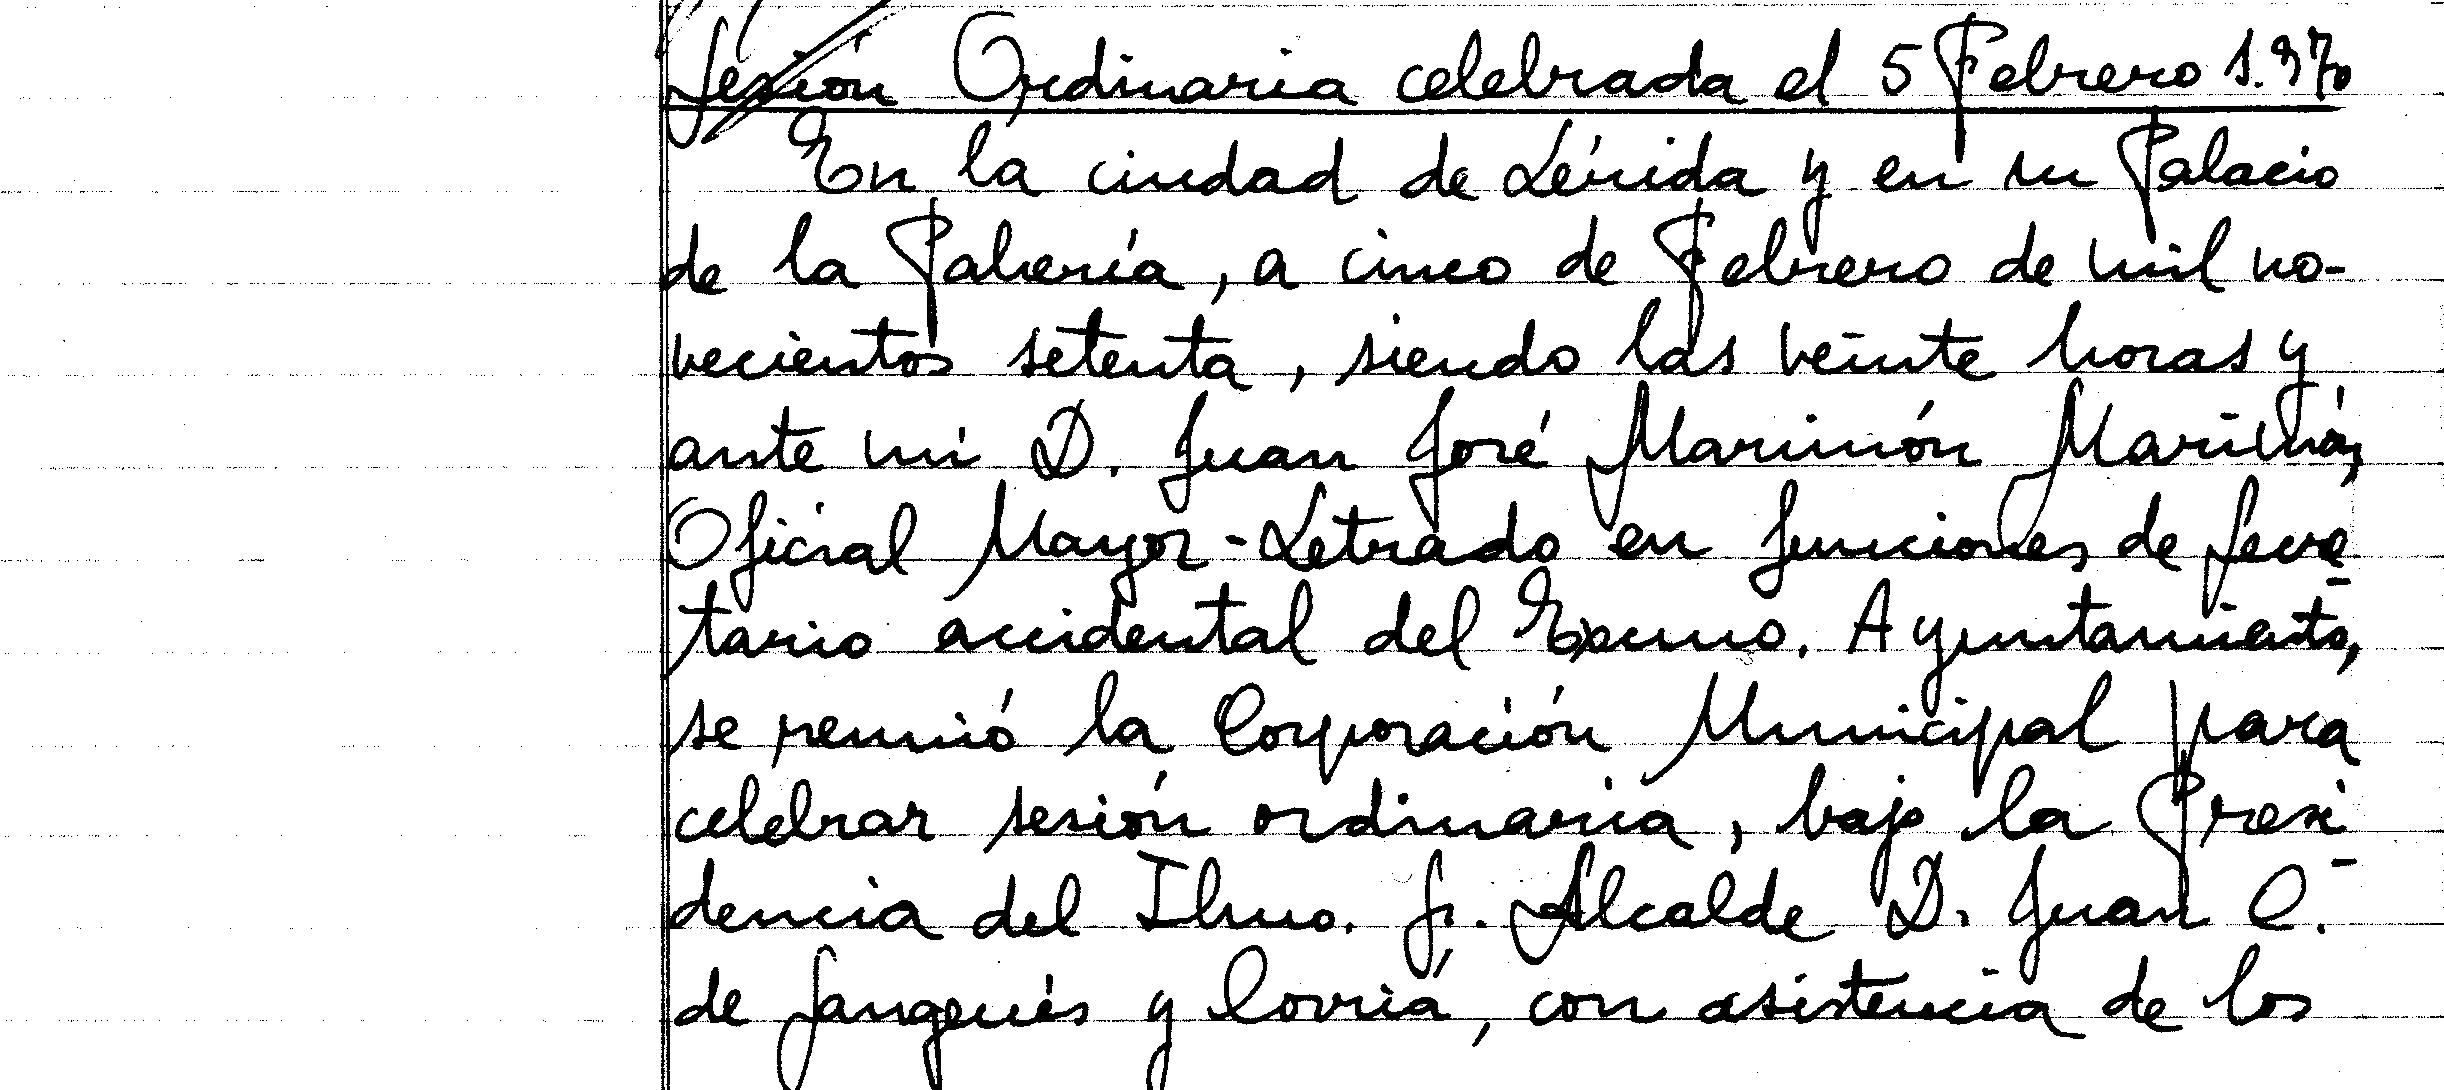 Sesión Ordinaria celebrada el 5 Febrero 1.970
En la ciudad de Lérida y en su Palacio
de la Pahería, a cinco de Febrero de mil no-
vecientos setenta, siendo las veinte horas y
ante mi D. Juan José Marimón Marimón,
Oficial Mayor-Letrado en funciones de Secre-
tario accidental del Excmo. Ayuntamiento,
se reunió la Corporación Municipal para
celebrar sesión ordinaria, bajo la Presi-
dencia del Ilmo. Sr. Alcalde D. Juan C.
de Sangenís y Corriá, con asistencia de los